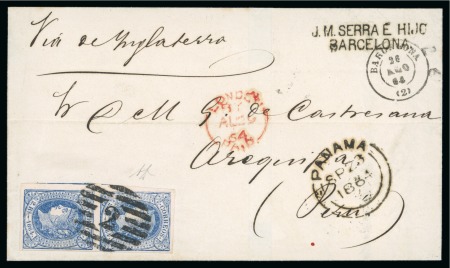 J. M. SERRA É HIJO
BARCELONA
Via de Ynglaterra
BARCELONA
26
AGO
64
(2)
LONDON
AU
64
PAID
G. de Castresana
Arequipa
Peru
PANAMA
SP 23
1864
2